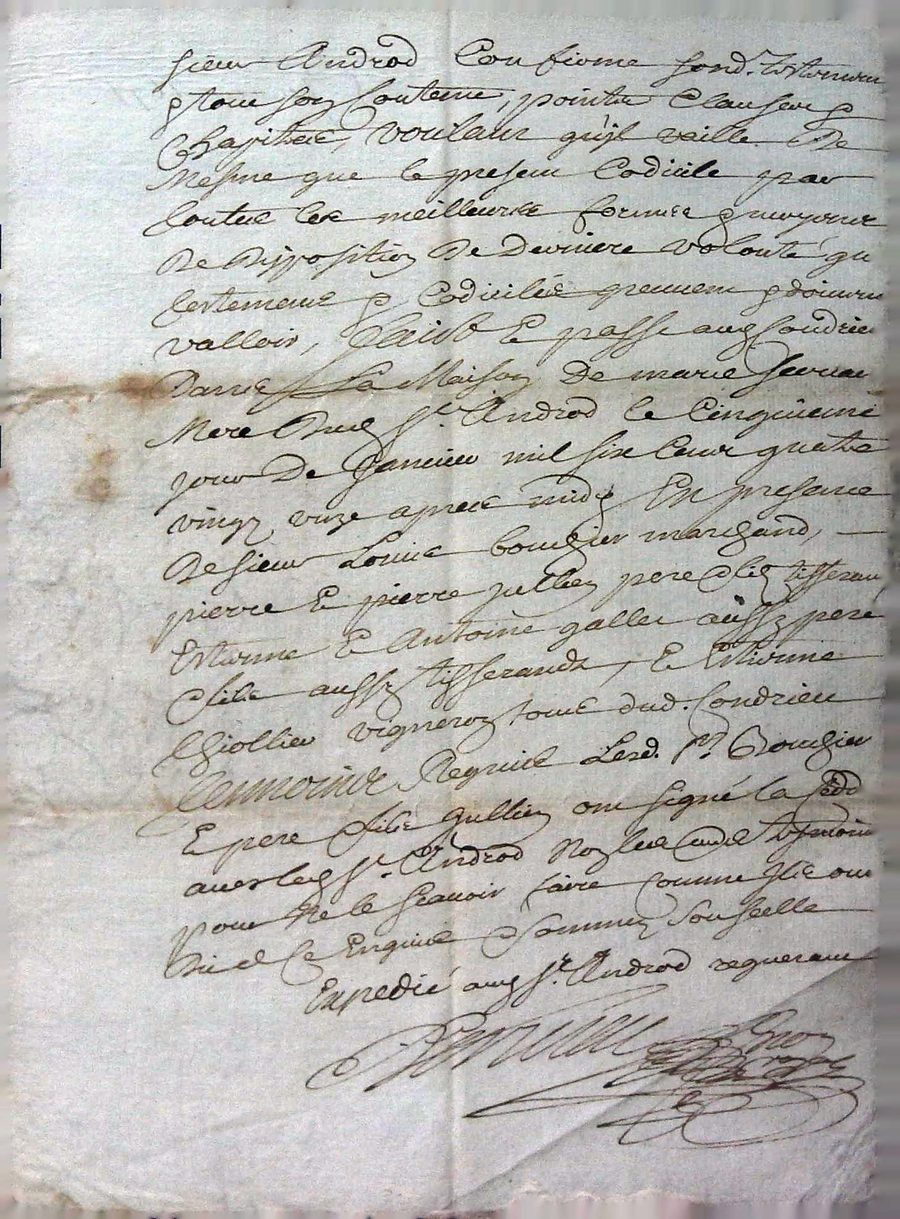 sieur Androd Confirme sond. testamen
& tout son Contenu, pointz Clauses &
Chapitres, voulant qu'jl vaille De
Mesme que le present Codicile par
touttes les meilleures formes & moyens
De Disposition De Derniere volonté qu
testements & Codiciles peuvent & doiuen
valloir, faict & passé aud Condrieu
Dans La Maison De marie
Mere Dud Sr. Androd le Cinquieme
jour De Januier mil six cens quatre
vingz unze apres midy En presence
De sieur Louis bouchier marchand,
pierre & pierre jullien pere & filz tisseran
Estienne & Antoine galler aussy pere
& filz aussy tisserands, & Estienne
Chollier vigneron tous dud. Condrieu
tesmoins Requis Lesd. Sr. Bouchier
& pere & filz jullien ont signé la
auec led Sr. Androd Non les aud tesmoins
pour Ne le scauoir faire comme jls ont
Dict Ce Enquis & sommez soubselle
Expedié aud Sr. Androd requerant